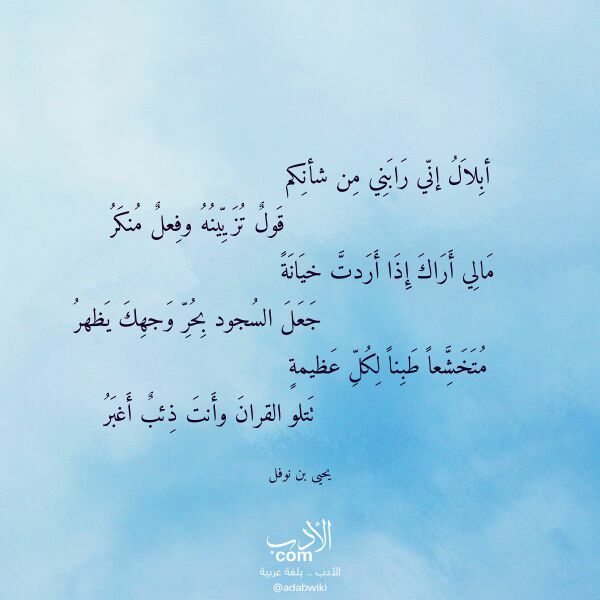 أَبِلاَلُ إنّي رَابَنِي مِن شأنِكم
قَولٌ تُزَيِّينُهُ وفِعلٌ مُنكَرُ
مَالِي أَرَاكَ إِذَا أَرَدتَّ خيَانَةً
جَعَلَ السُجود بِحُرِّ وَجهِكَ يَظهرُ
مُتَخَشِّعاً طَبِناً لِكُلِّ عَظيمةٍ
تَتلو القرانَ وأَنتَ ذِئبٌ أَغبَرُ
يحيى بن نوفل
الأدب
com
الأدب .. بلغة عربية
@adabwiki